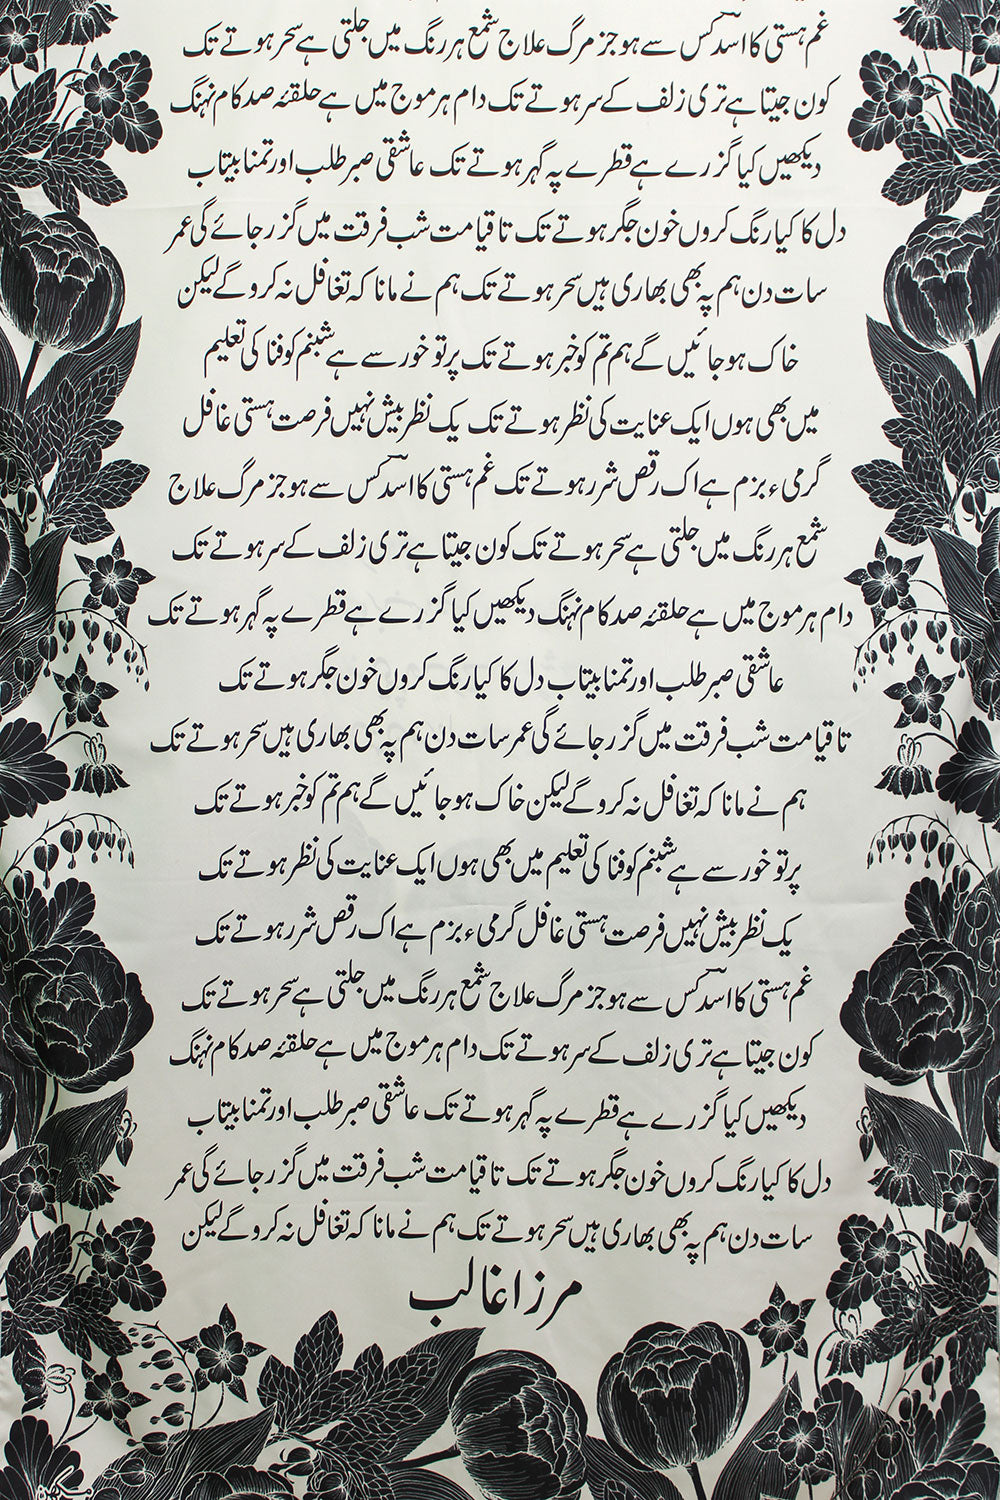 غم ہستی کا اسدؔ کس سے ہو جز مرگ علاج شمع ہر رنگ میں جلتی ہے سحر ہوتے تک
کون جیتا ہے تری زلف کے سر ہوتے تک دام ہر موج میں ہے حلقۂ صد کام نہنگ
دیکھیں کیا گزرے ہے قطرے پہ گہر ہوتے تک عاشقی صبر طلب اور تمنا بیتاب
دل کا کیا رنگ کروں خون جگر ہوتے تک تا قیامت شب فرقت میں گزر جائے گی عمر
سات دن ہم پہ بھی بھاری ہیں سحر ہوتے تک ہم نے مانا کہ تغافل نہ کرو گے لیکن
خاک ہو جائیں گے ہم تم کو خبر ہوتے تک پرتو خور سے ہے شبنم کو فنا کی تعلیم
میں بھی ہوں ایک عنایت کی نظر ہوتے تک یک نظر بیش نہیں فرصت ہستی غافل
گرمیء بزم ہے اک رقص شرر ہوتے تک غم ہستی کا اسدؔ کس سے ہو جز مرگ علاج
شمع ہر رنگ میں جلتی ہے سحر ہوتے تک کون جیتا ہے تری زلف کے سر ہوتے تک
دام ہر موج میں ہے حلقۂ صد کام نہنگ دیکھیں کیا گزرے ہے قطرے پہ گہر ہوتے تک
عاشقی صبر طلب اور تمنا بیتاب دل کا کیا رنگ کروں خون جگر ہوتے تک
تا قیامت شب فرقت میں گزر جائے گی عمر سات دن ہم پہ بھی بھاری ہیں سحر ہوتے تک
ہم نے مانا کہ تغافل نہ کرو گے لیکن خاک ہو جائیں گے ہم تم کو خبر ہوتے تک
پرتو خور سے ہے شبنم کو فنا کی تعلیم میں بھی ہوں ایک عنایت کی نظر ہوتے تک
یک نظر بیش نہیں فرصت ہستی غافل گرمیء بزم ہے اک رقص شرر ہوتے تک
غم ہستی کا اسدؔ کس سے ہو جز مرگ علاج شمع ہر رنگ میں جلتی ہے سحر ہوتے تک
کون جیتا ہے تری زلف کے سر ہوتے تک دام ہر موج میں ہے حلقۂ صد کام نہنگ
دیکھیں کیا گزرے ہے قطرے پہ گہر ہوتے تک عاشقی صبر طلب اور تمنا بیتاب
دل کا کیا رنگ کروں خون جگر ہوتے تک تا قیامت شب فرقت میں گزر جائے گی عمر
سات دن ہم پہ بھی بھاری ہیں سحر ہوتے تک ہم نے مانا کہ تغافل نہ کرو گے لیکن
مرزا غالب